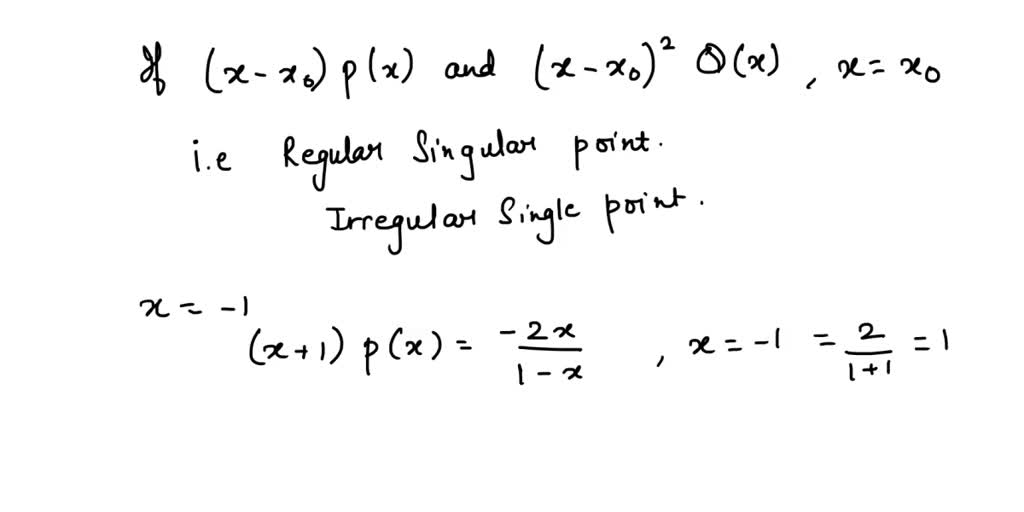 If (x - x₀) p(x) and (x - x₀)² Q(x), x = x₀
i.e Regular Singular point.
Irregular Single point.
x = -1
(x+1) p(x) = \frac{-2x}{1-x} , x = -1 = \frac{2}{1+1} = 1